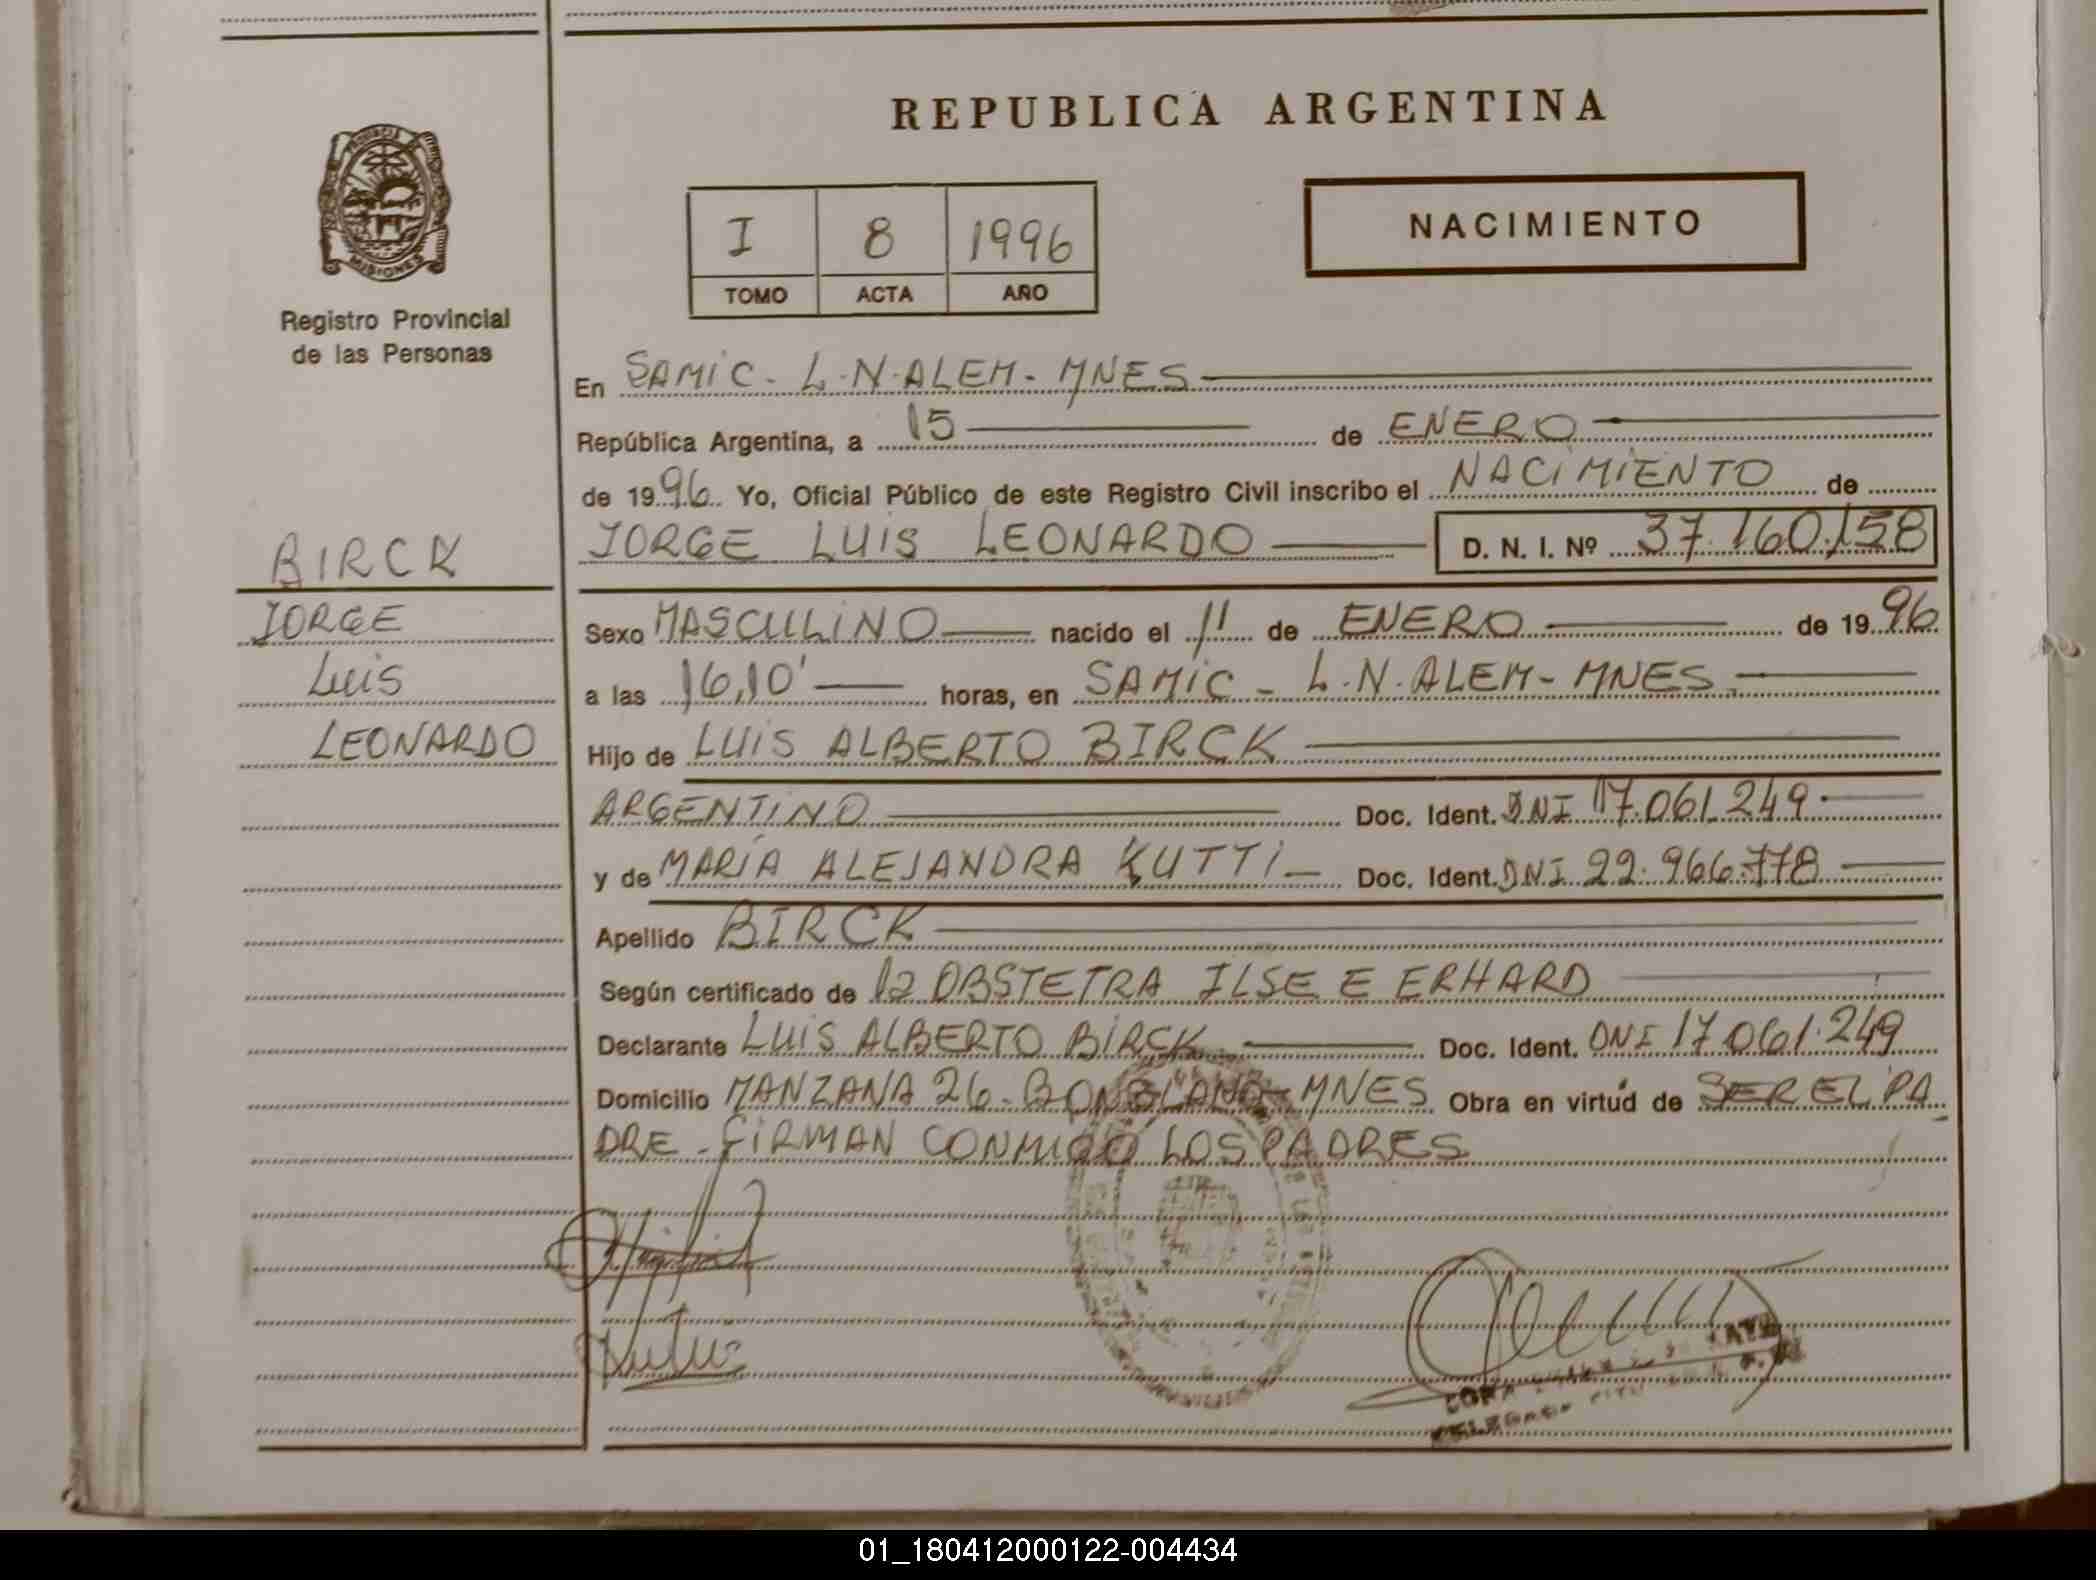 REPUBLICA ARGENTINA
PROVINCIA DE
MISIONES
Registro Provincial
de las Personas
NACIMIENTO
I 8 1996
TOMO ACTA AÑO
En SAMIC - L.N.ALEM - MNES
República Argentina, a 15 de ENERO
de 1996 Yo, Oficial Público de este Registro Civil inscribo el NACIMIENTO de
JORGE LUIS LEONARDO D. N. I. Nº 37.160.158
BIRCK
JORGE
Luis
LEONARDO
Sexo MASCULINO nacido el 11 de ENERO de 1996
a las 16,10' horas, en SAMIC - L.N.ALEM - MNES.
Hijo de LUIS ALBERTO BIRCK
ARGENTINO Doc. Ident. DNI 17.061.249
y de MARÍA ALEJANDRA KUTTI Doc. Ident. DNI 22.966.778
Apellido BIRCK
Según certificado de la OBSTETRA ILSE E ERHARD
Declarante LUIS ALBERTO BIRCK Doc. Ident. DNI 17.061.249
Domicilio MANZANA 26 - BONPLAND - MNES Obra en virtud de SER EL PA
DRE - FIRMAN CONMIGO LOS PADRES
01_180412000122-004434